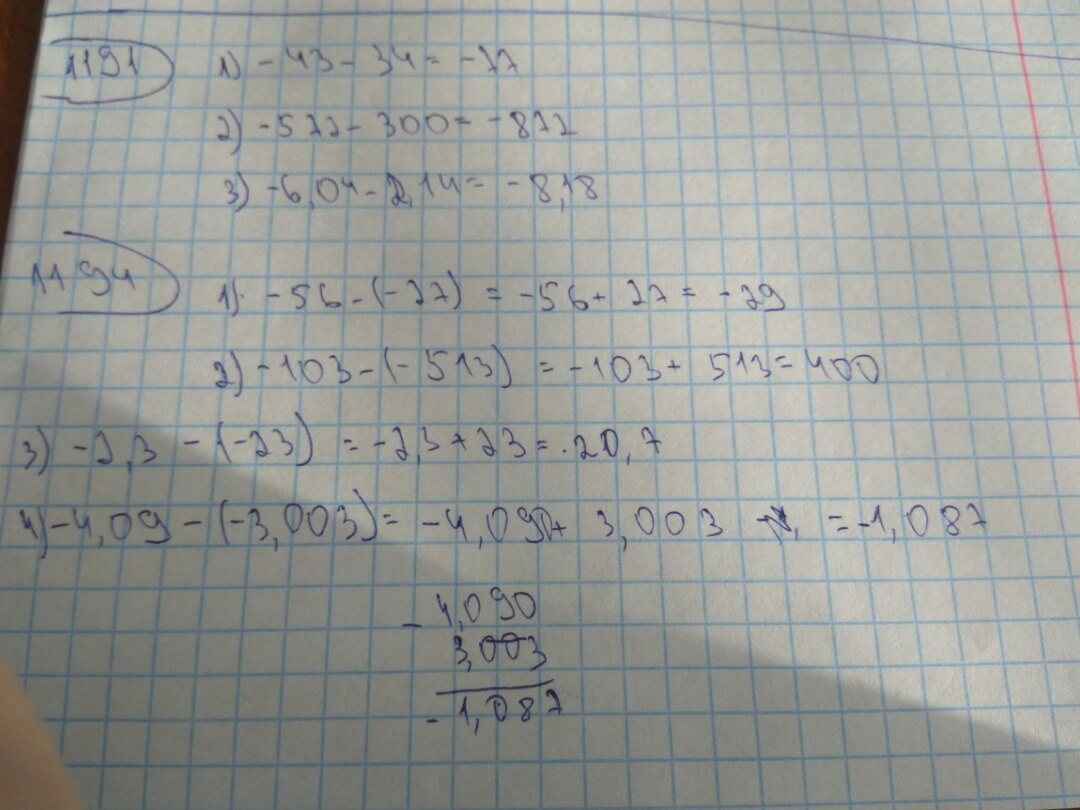 1191
1) -43 - 34 = -77
2) -577 - 300 = -877
3) -6,04 - 2,14 = -8,18
1194
1) -56 - (-27) = -56 + 27 = -29
2) -103 - (-513) = -103 + 513 = 400
3) -2,3 - (-23) = -2,3 + 23 = 20,7
4) -4,09 - (-3,003) = -4,090 + 3,003 = -1,087
- 4,090
3,003
-1,087